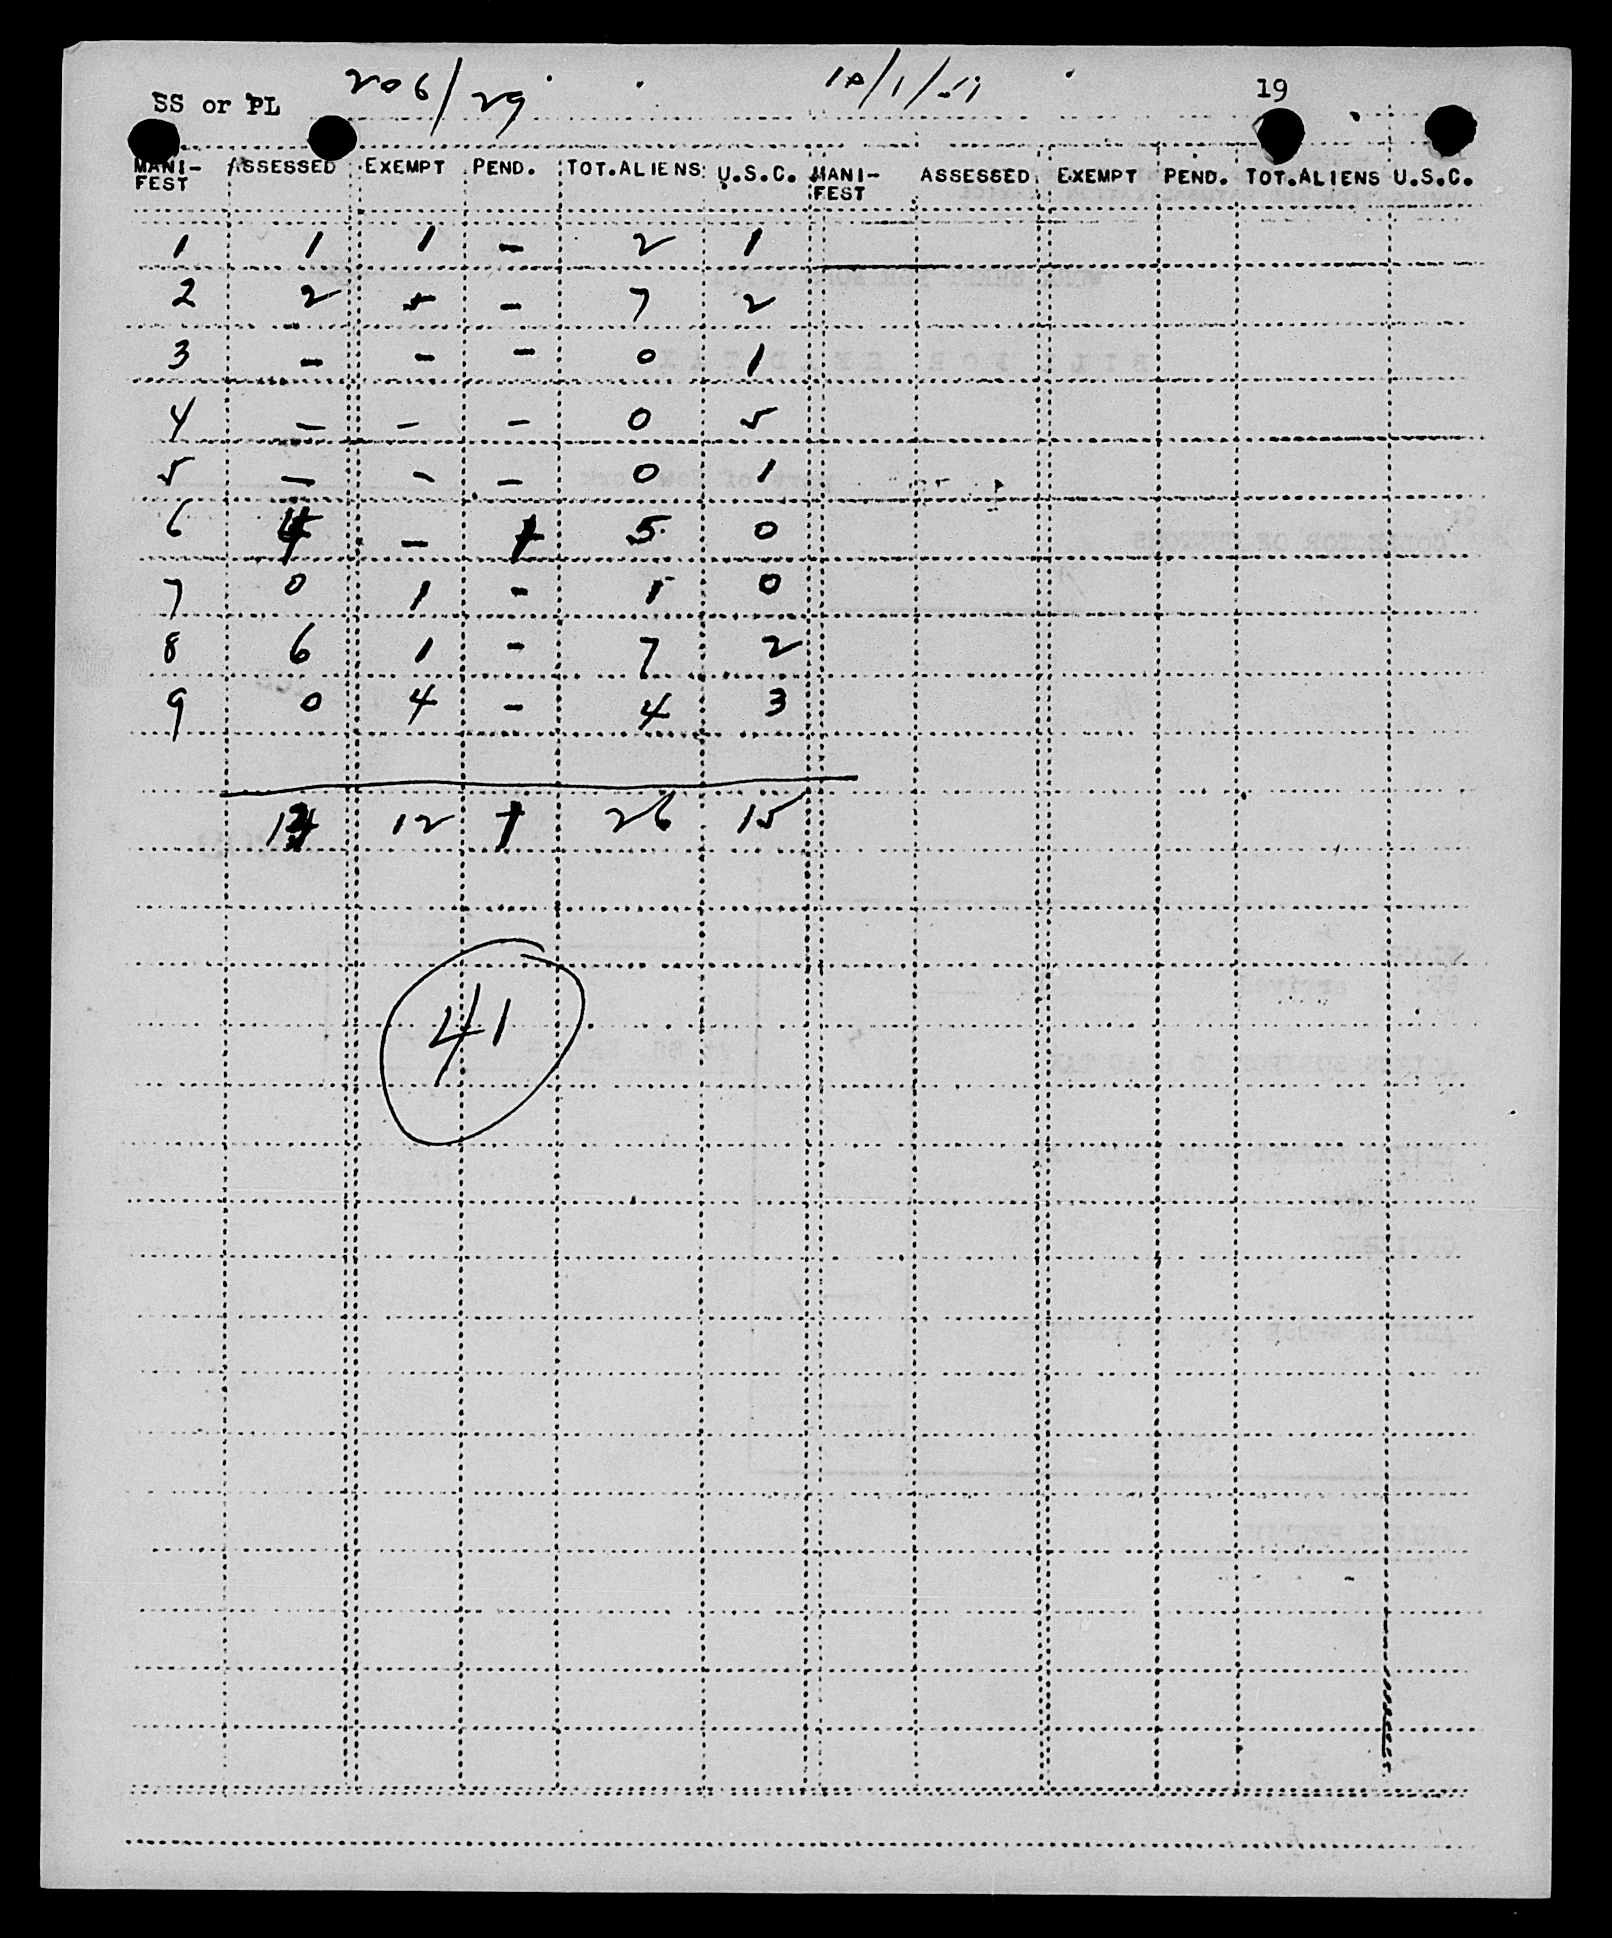 SS or PL 206/29 10/1/51 19
MANI-FEST ASSESSED EXEMPT PEND. TOT.ALIENS U.S.C. MANI-FEST ASSESSED EXEMPT PEND. TOT.ALIENS U.S.C.
1 1 1 - 2 1
2 2 5 - 7 2
3 - - - 0 1
4 - - - 0 5
5 - - - 0 1
6 - 5 0
7 0 1 - 1 0
8 6 1 - 7 2
9 0 4 - 4 3
12 26 15
41